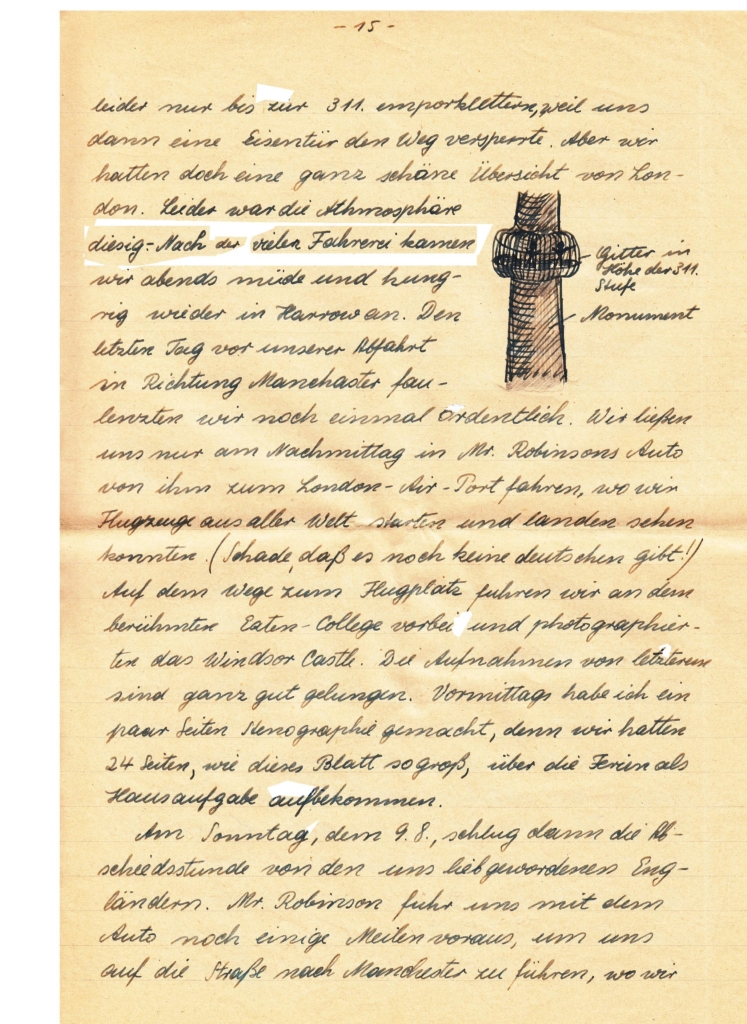 - 15 -
leider nur bis zur 311. emporklettern, weil uns
dann eine Eisentür den Weg versperrte. Aber wir
hatten doch eine ganz schöne Übersicht von Lon-
don. Leider war die Athmosphäre
diesig. Nach der vielen Fahrerei kamen
wir abends müde und hung-
rig wieder in Harrow an. Den
letzten Tag vor unserer Abfahrt
in Richtung Manchaster fau-
lenzten wir noch einmal ordentlich. Wir ließen
uns nur am Nachmittag in Mr. Robinsons Auto
von ihm zum London-Air-Port fahren, wo wir
Flugzeuge aus aller Welt starten und landen sehen
konnten. (Schade, daß es noch keine deutschen gibt!)
Auf dem Wege zum Flugplatz fuhren wir an dem
berühmten Eaten-College vorbei und photographier-
ten das Windsor Castle. Die Aufnahmen von letzterem
sind ganz gut gelungen. Vormittags habe ich ein
paar Seiten Stenographie gemacht, denn wir hatten
24 Seiten, wie dieses Blatt so groß, über die Ferien als
Hausaufgabe aufbekommen.
Am Sonntag, dem 9.8., schlug dann die Ab-
schiedsstunde von den uns liebgewordenen Eng-
ländern. Mr. Robinson fuhr uns mit dem
Auto noch einige Meilen voraus, um uns
auf die Straße nach Manchester zu führen, wo wir
Gitter in
Höhe der 311.
Stufe
Monument